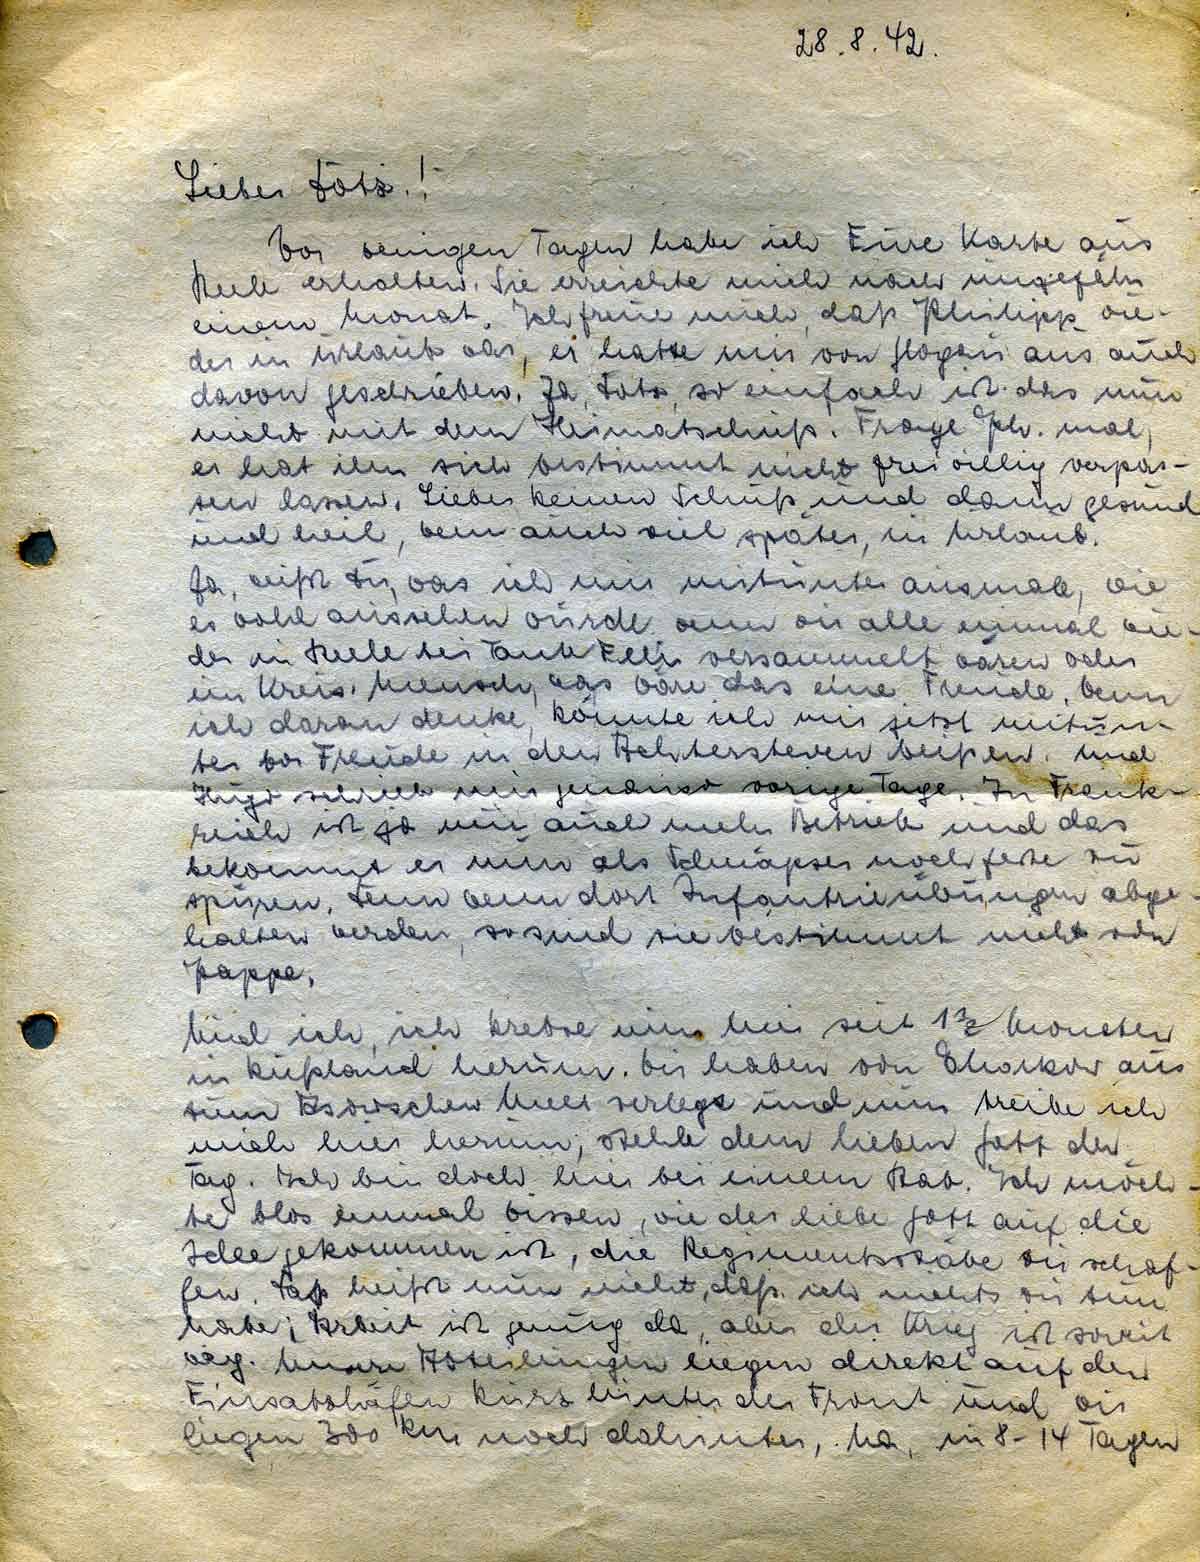 28.8.42.
Lieber Götz.!
Vor wenigen Tagen habe ich Eure Karte aus
erhalten. Sie erreichte mich nach ungefähr
einem Monat. Ich freue mich, daß Philipp wie-
der in Urlaub war, er hatte mir von Glogau aus auch
davon geschrieben. Ja, so einfach ist das nun
nicht mit dem Heimatschuß. Frage Ph. mal,
er hat ihn sich bestimmt nicht freiwillig verpas-
sen lassen. Lieber keinen Schuß und dann gesund
und heil, wenn auch viel später, in Urlaub.
Ja, weißt Du, was ich mir mitunter ausmale, wie
es wohl aussehen würde wenn wir alle einmal wie-
der in bei Tante Elli versammelt wären oder
im Kreis. Mensch, was wäre das eine Freude. Wenn
ich daran denke, könnte ich mir jetzt mitun-
ter vor Freude in den Achtersteven beißen. Und
Hugo schrieb mir genauso vorige Tage. In Frank-
reich ist ja nun auch mehr Betrieb und das
bekommt er nun als Schnäpser noch feste zu
spüren. Denn wenn dort Infantrieübungen abge-
halten werden, so sind sie bestimmt nicht von
Pappe.
Und ich, ich krebse nun hier seit 1 1/2 Monaten
in Rußland herum. Wir haben von Charkow aus
zum Asowschen Meer verlegt und nun treibe ich
mich hier herum, stehle dem lieben Gott den
Tag. Ich bin doch hier bei einem Stab. Ich möch-
te blos einmal wissen, wie der liebe Gott auf die
Idee gekommen ist, die Regimentsstäbe zu schaf-
fen. Das heißt nun nicht, daß ich nichts zu tun
habe; Arbeit ist genug da, aber der Krieg ist soweit
weg. Unsere Abteilungen liegen direkt auf den
Einsatzhäfen kurz hinter der Front und wir
liegen 300 km noch dahinter. Na, in 8-14 Tagen